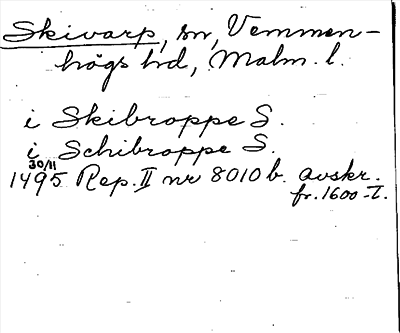 Skivarp, sn, Vemmen-
högs hd, Malm. l.
i Skibroppe S.
i Schibroppe S.
30/11
1495 Rep. II nr 8010 b. avskr.
fr. 1600-t.